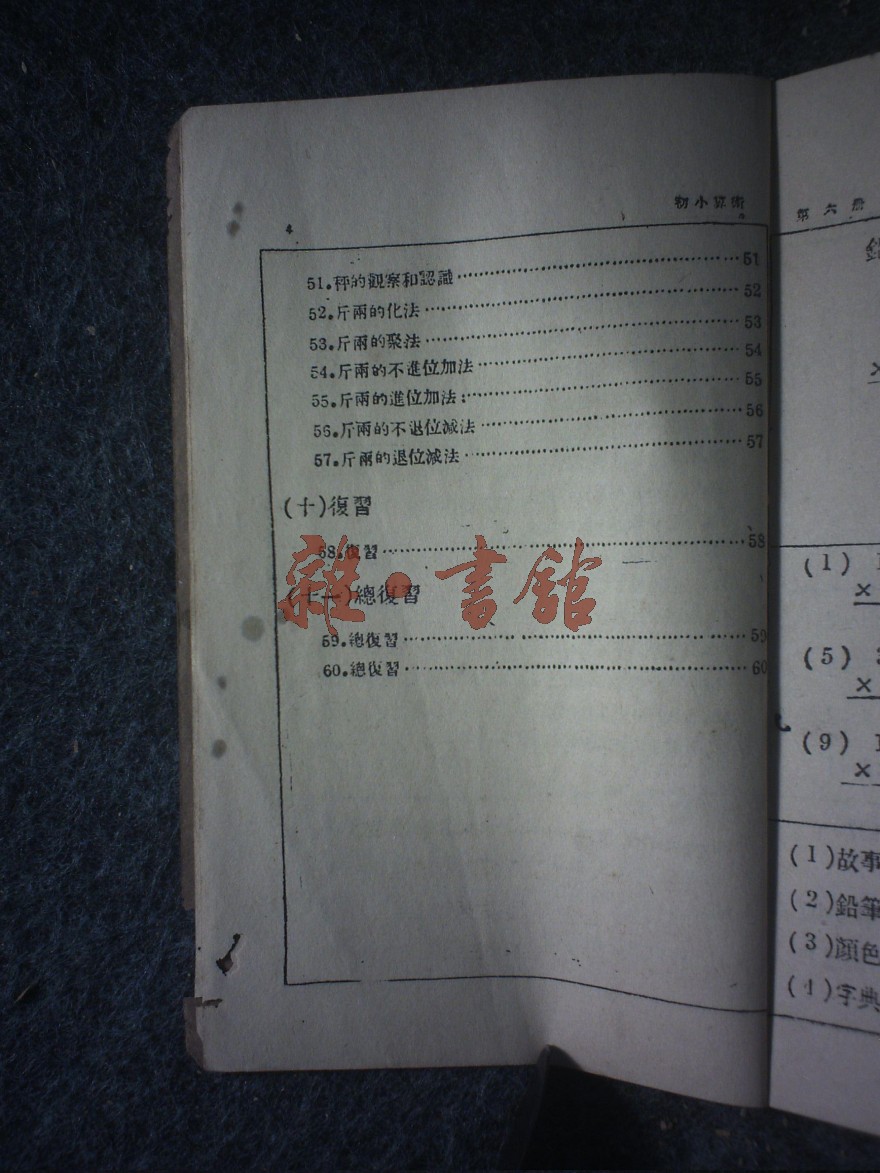 4
初小算術
51.秤的觀察和認識………51
52.斤兩的化法………52
53.斤兩的聚法………53
54.斤兩的不進位加法………54
55.斤兩的進位加法………55
56.斤兩的不退位減法………56
57.斤兩的退位減法………57
(十)復習
58.復習………58
(十一)總復習
59.總復習………59
60.總復習………60
雜·書館
第六册
(1) 1
×
(5)
×
(9) 1
×
(1)故事
(2)鉛筆
(3)顏色
(4)字典